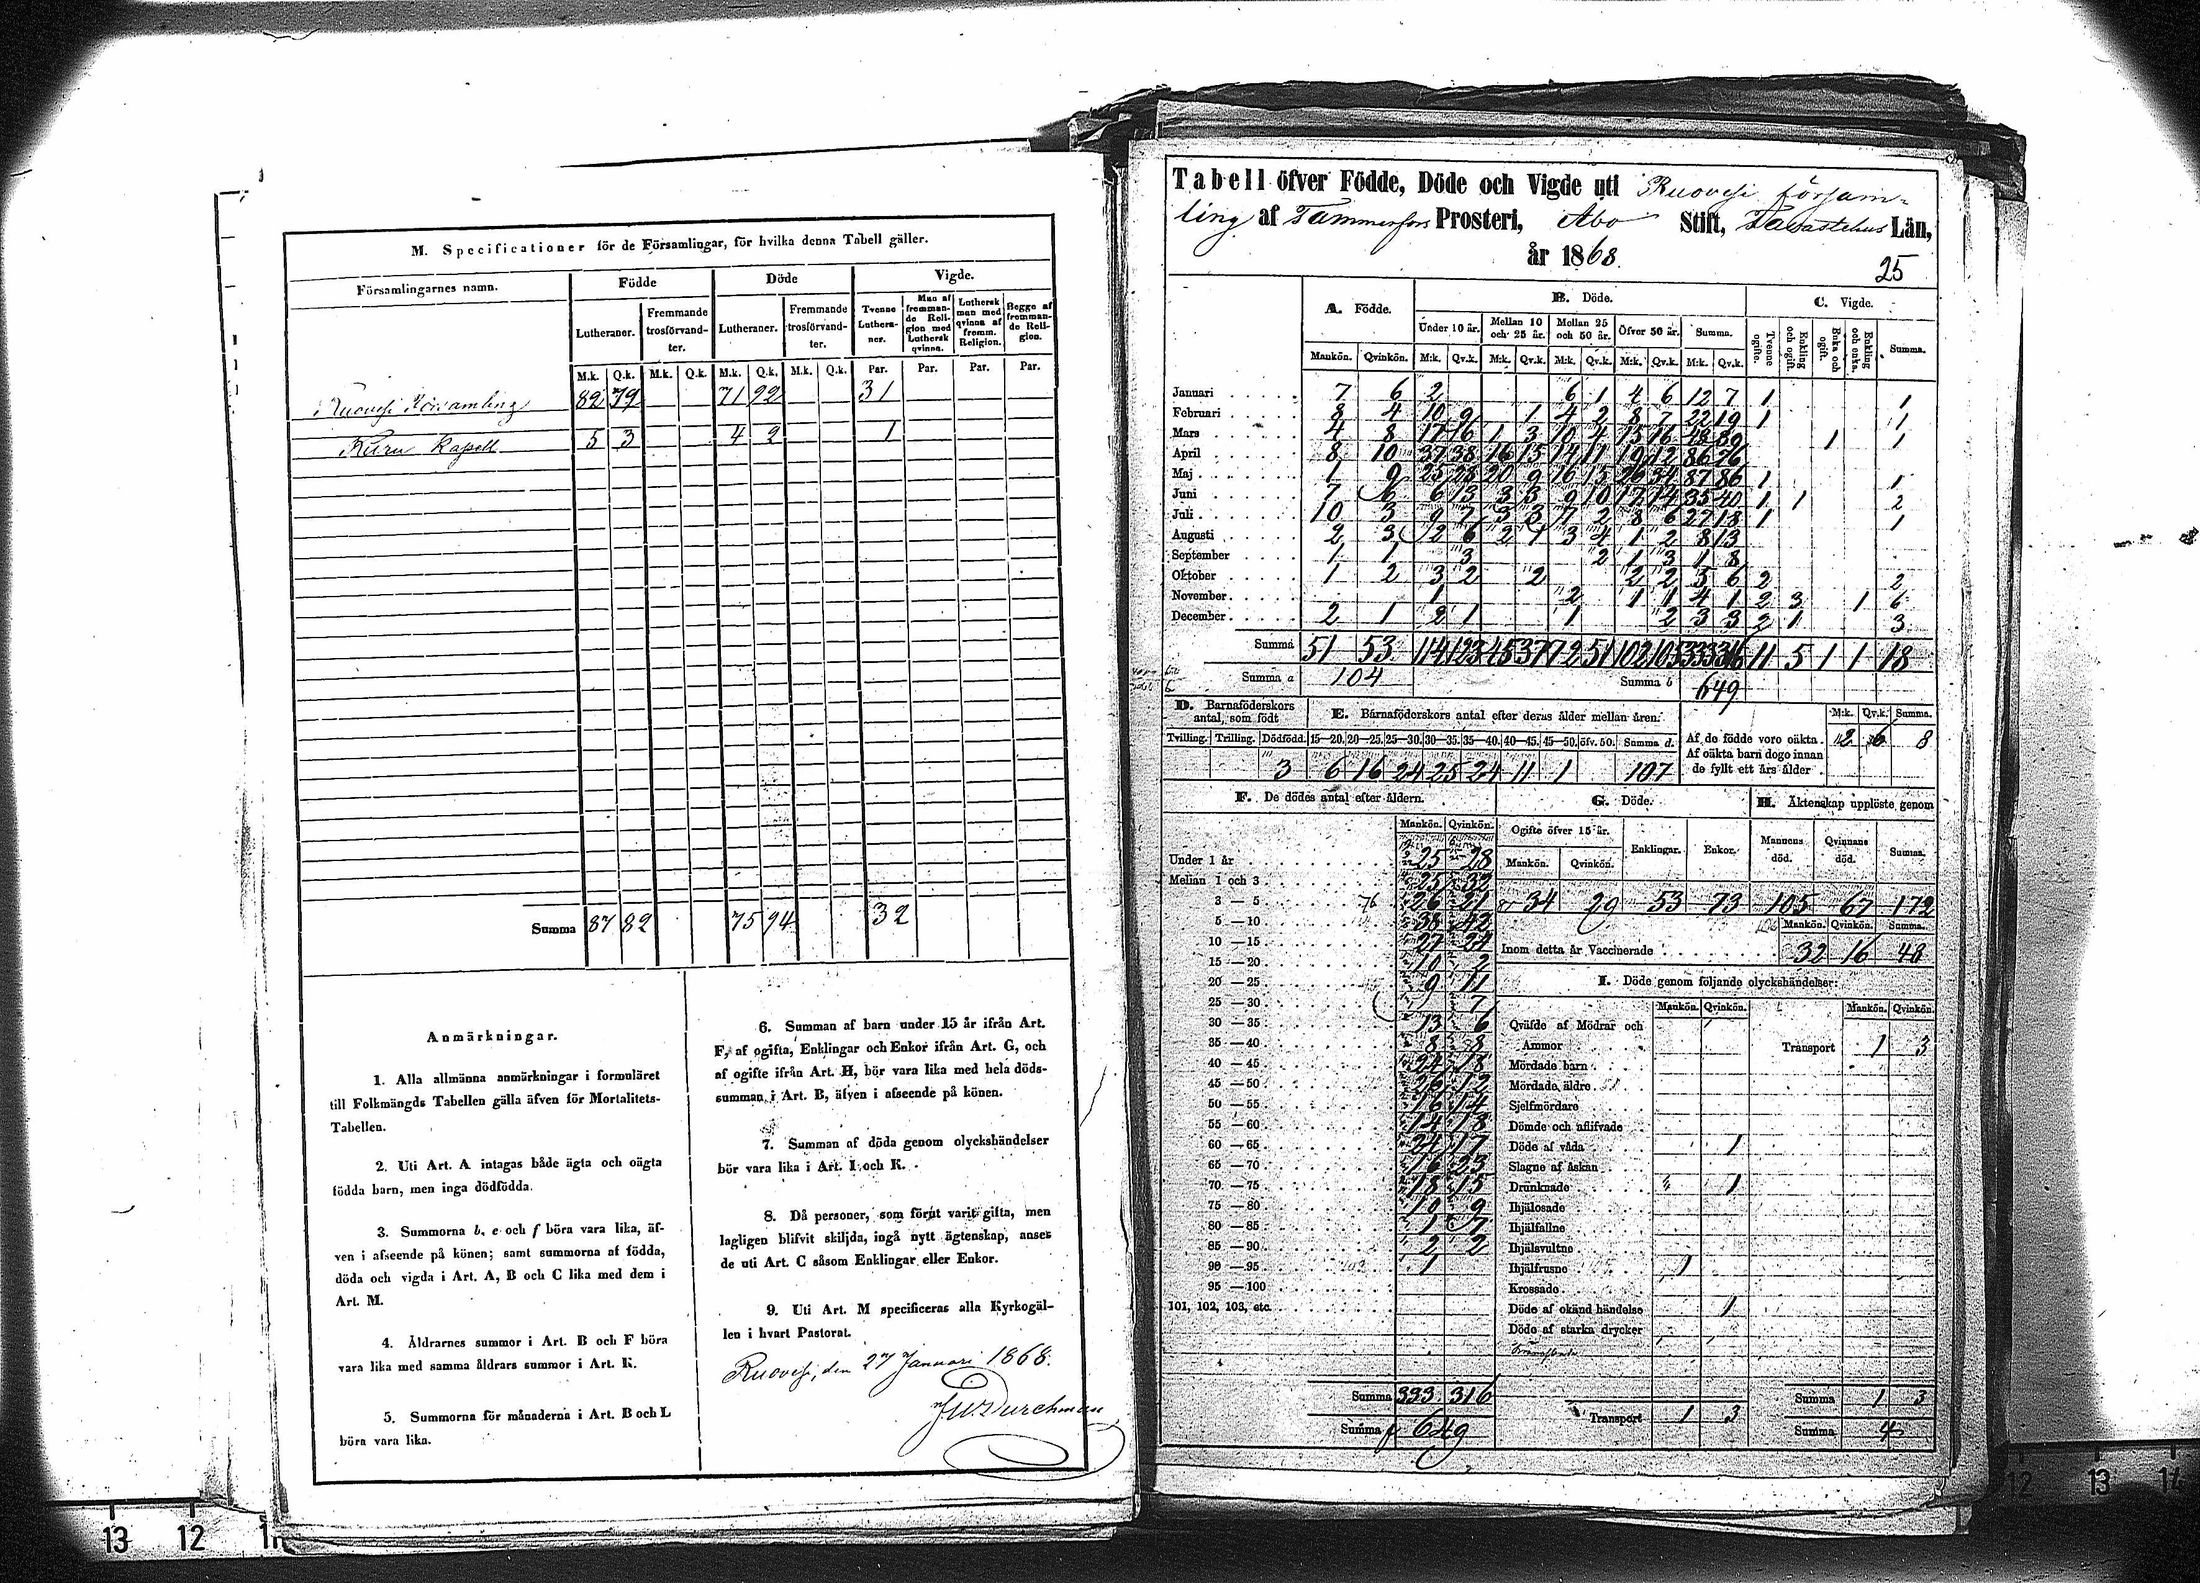 M. Specificationer för de Församlingar, för hvilka denna Tabell gäller.
Församlingarnes namn.
Födde
Döde
Vigde.
Lutheraner.
Fremmande trosförvandter.
Lutheraner.
Fremmande trosförvandter.
Tvenne Lutheraner.
Man af fremmande Religion med Luthersk qvinna.
Luthersk man med qvinna af fremm. Religion.
Begge af fremmande Religion.
M.k. Q.k. M.k. Q.k. M.k. Q.k. M.k. Q.k. Par. Par. Par. Par.
Ruovesi Församling 82 79 71 92 31
Kuru Kapell 5 3 4 2 1
Summa 87 82 75 94 32
Anmärkningar.
1. Alla allmänna anmärkningar i formuläret
till Folkmängds Tabellen gälla äfven för Mortalitets-
Tabellen.
2. Uti Art. A intagas både ägta och oägta
födda barn, men inga dödfödda.
3. Summorna b, e och f böra vara lika, äf-
ven i afseende på könen; samt summorna af födda,
döda och vigda i Art. A, B och C lika med dem i
Art. M.
4. Åldrarnes summor i Art. B och F böra
vara lika med samma åldrars summor i Art. K.
5. Summorna för månaderna i Art. B och L
böra vara lika.
6. Summan af barn under 15 år ifrån Art.
F, af ogifta, Enklingar och Enkor ifrån Art. G, och
af ogifte ifrån Art. H, bör vara lika med hela döds-
summan i Art. B, äfven i afseende på könen.
7. Summan af döda genom olyckshändelser
bör vara lika i Art. I och K.
8. Då personer, som förut varit gifta, men
lagligen blifvit skiljda, ingå nytt ägtenskap, anses
de uti Art. C såsom Enklingar eller Enkor.
9. Uti Art. M specificeras alla Kyrkogäl-
len i hvart Pastorat.
Ruovesi, den 27 Januari 1868.
Tabell öfver Födde, Döde och Vigde uti Ruovesi församling
af Tammerfors Prosteri, Åbo Stift, Tavastehus Län,
år 1868.
25
A. Födde.
B. Döde.
C. Vigde.
Under 10 år. Mellan 10 och 25 år. Mellan 25 och 50 år. Öfver 50 år. Summa.
Tvenne ogifte. Enkling och ogift. Enka och ogift. Enkling och enka. Summa.
Mankön. Qvinkön. M:k. Qv.k. M:k. Qv.k. M:k. Qv.k. M:k. Qv.k. M:k. Qv.k.
Januari 7 6 2 6 1 4 6 12 7 1 1
Februari 8 4 10 9 1 4 2 8 7 22 19 1 1
Mars 4 8 17 16 1 3 15 16 1 1
April 8 10 37 38 16 15 14 11 19 12 86 76
Maj 1 9 25 28 20 9 16 15 26 34 87 86 1 1
Juni 7 6 6 13 3 3 9 10 17 14 35 40 1 1 2
Juli 10 3 9 7 3 3 7 2 8 6 27 18 1 1
Augusti 2 3 2 6 2 1 3 4 1 2 8 13
September 1 1 3 2 1 3 1 8
Oktober 1 2 3 2 2 2 2 5 6 2 2
November 1 2 1 1 4 1 2 3 1 6
December 2 1 2 1 1 2 3 3 2 1 3
Summa 51 53 114 123 45 37 72 51 102 105 333 316 11 5 1 1 18
Summa a 104 Summa b 649
D. Barnaföderskors antal, som födt
Tvilling. Trilling. Dödfödd.
3
E. Barnaföderskors antal efter deras ålder mellan åren:
15—20. 20—25. 25—30. 30—35. 35—40. 40—45. 45—50. öfv. 50. Summa d.
6 16 24 25 24 11 1 107
M:k. Qv.k. Summa.
Af de födde voro oäkta. 2 6 8
Af oäkta barn dogo innan
de fyllt ett års ålder
F. De dödes antal efter åldern.
Mankön. Qvinkön.
Under 1 år 25 28
Mellan 1 och 3 25 32
3 — 5 26 21
5 —10 38 42
10 —15 27 24
15 —20 10 2
20 —25 9 11
25 —30 7
30 —35 13 6
35 —40 8 8
40 —45 24 18
45 —50 26 12
50 —55 16 14
55 —60 14 18
60 —65 24 17
65 —70 16 23
70 —75 18 15
75 —80 10 9
80 —85 1 7
85 —90 2 2
90 —95 1
95 —100
101, 102, 103, etc.
Summa 333 316
Summa f 649
G. Döde.
Ogifte öfver 15 år. Enklingar. Enkor.
Mankön. Qvinkön.
34 29 53 73
H. Äktenskap upplöste genom
Mannens död. Qvinnans död. Summa.
105 67 172
Mankön. Qvinkön. Summa.
Inom detta år Vaccinerade 32 16 48
I. Döde genom följande olyckshändelser:
Mankön. Qvinkön. Mankön. Qvinkön.
Qväfde af Mödrar och
Ammor
Transport 1 3
Mördade barn
Mördade äldre
Sjelfmördare
Dömde och aflifvade
Döde af våda 1
Slagne af åskan
Drunknade 1
Ihjälosade
Ihjälfallne
Ihjälsvultne
Ihjälfrusne 1
Krossade
Döde af okänd händelse 1
Döde af starka drycker
Summa 1 3
Transport 1 3
Summa 4
13 12 11
12 13 14